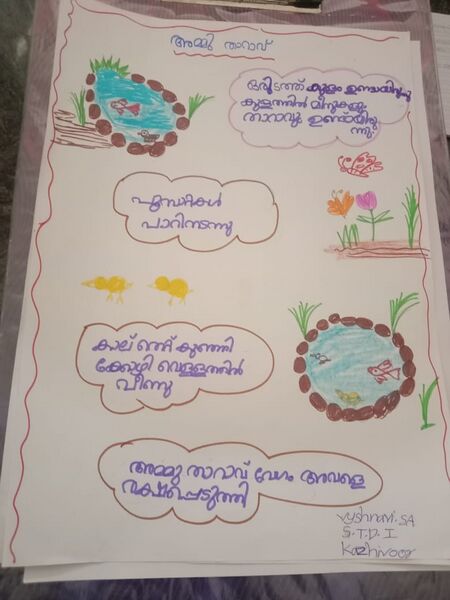 അമ്മു താറാവ്
ഒരിടത്ത് കുളം ഉണ്ടായിരുന്നു
കുളത്തിൽ മീനുകളും
താറാവും ഉണ്ടായിരു
ന്നു
പൂമ്പാറ്റകൾ
പാറിനടന്നു
കാല് തെറ്റി കുഞ്ഞി
ക്കോഴി വെള്ളത്തിൽ
വീണു
അമ്മു താറാവ് വേഗം അവളെ
രക്ഷപ്പെടുത്തി
Vyshnavi.SA
S.T.D I
Kazhivoor